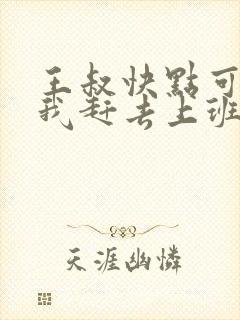 王叔快點可
我赶去上班
天涯幽憐